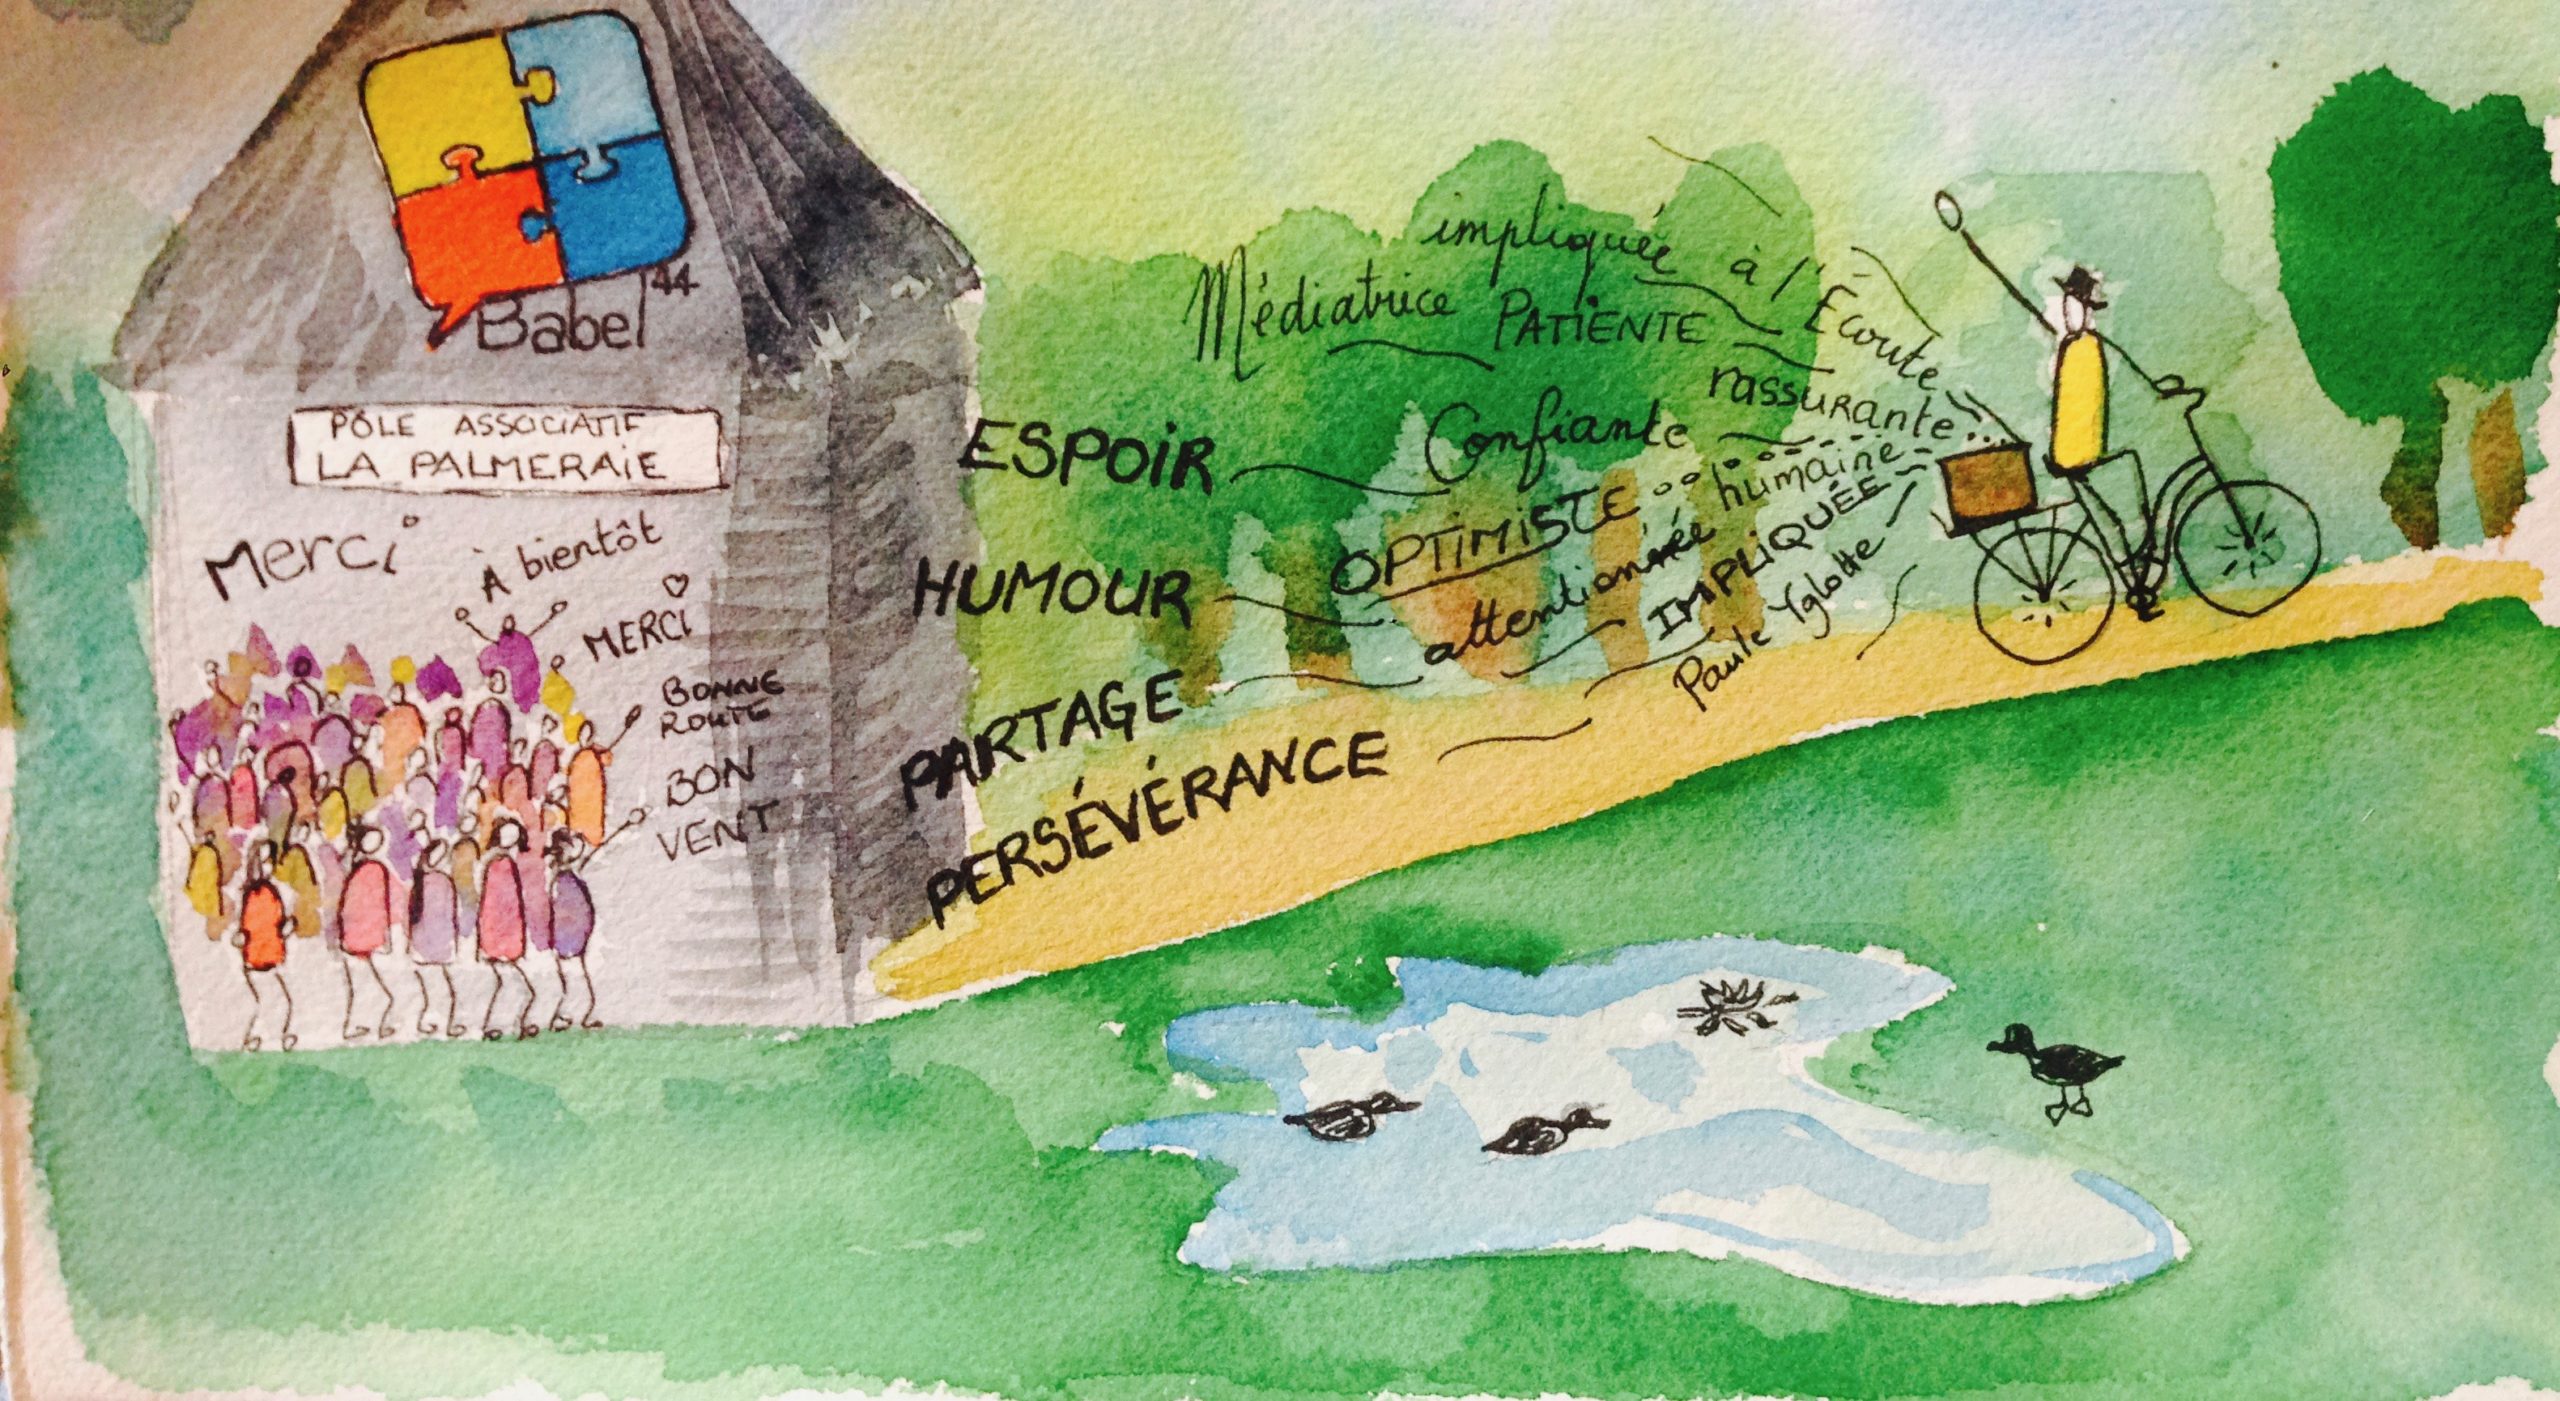 Babel 44
PÔLE ASSOCIATIF
LA PALMERAIE
Merci
À bientôt
MERCI
BONNE
ROUTE
BON
VENT
impliquée à l'Écoute
Médiatrice PATIENTE
rassurante...
ESPOIR
Confiante
humaine
OPTIMISTE
HUMOUR
attentionnée
IMPLIQUÉE
Paule Yglotte
PARTAGE
PERSÉVÉRANCE